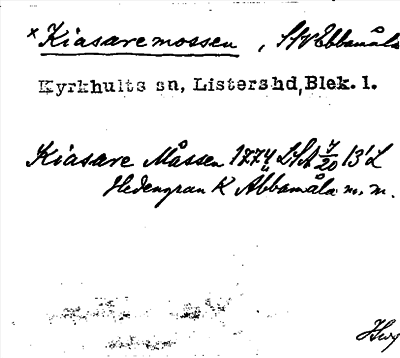 × Kiasaremossen, SSV Ebbamåla
Kyrkhults sn, Listershd, Blek. l.
Kiasare Måssen 1774 LSA 7/20 13'L
Hedengran K Abbamåla m. m.